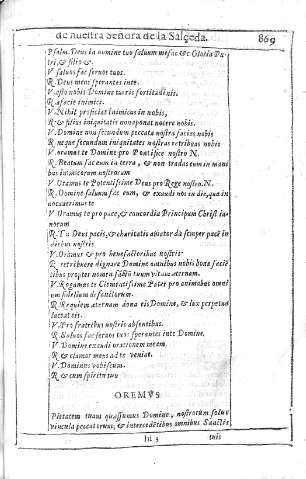 de nuestra Señora de la Salçeda. 869
Psalm. Deus in nomine tuo saluum me fac &c Gloria Pa-
tri, & filio &.
V saluos fac seruos tuos.
R. Deus meus sperantes in te.
V. esto nobis Domine turris fortitudinis.
R. a facie inimici.
V. Nihil proficiat inimicus in nobis,
R. & filius iniquitatis non aponat nocere nobis.
V. Domine non secundum peccata nostra facias nobis
R neque secundum iniquitates nostras retribuas nobis
V. oramus te Domine pro Pontifice nostro N.
R. Beatum fac eum in terra, & non tradas eum in mani
bus inimicorum nostrorum
V. Oramus te Potentissime Deus pro Rege nostro. N.
R. Domine saluum fac eum, & exaudi nos in die, qua in
uocauerimus te
V Oramus te pro pace, & concordia Principum Christia-
norum
R. Tu Deus pacis, & charitatis absterda semper pacē in
diebus nostris
V. Oramus & pro benefactoribus nostris
R retribuere dignare Domine omnibus nobis bona facie-
tibus propter nomen sāctū tuum vitam æternam.
V. Rogamus te Clementissime Pater pro animabus omni
um fidelium defunctorum.
R. Requiem æternam dona eis Domine, & lux perpetua
luceat eis.
V. Pro fratribus nostris absentibus.
R. Saluos fac seruos tuos: sperantes in te Domine.
V. Domine exaudi orationem meam.
R & clamor meus ad te veniat.
V. Dominus vobiscum.
R & cum spiritu tuo
OREMVS
Pietatem tuam quæssumus Domine, nostrorum solue
vincula peccatorum, & intercedētibus omnibus Sanctis
hi 3 tuis